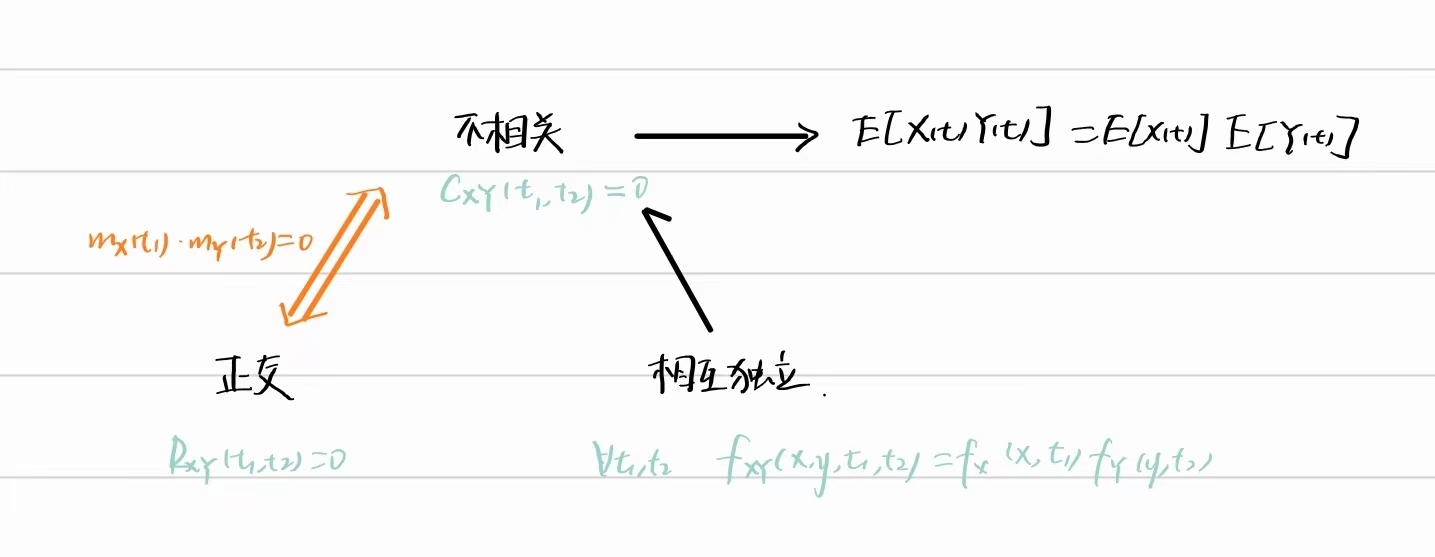 不相关 → E[X(t)Y(t)] = E[X(t)] E[Y(t)]
C_{XY}(t_1,t_2)=0
m_X(t_1)·m_Y(t_2)=0
正交
相互独立.
R_{XY}(t_1,t_2)=0
∀t_1,t_2 f_{XY}(x,y,t_1,t_2)=f_X(x,t_1)f_Y(y,t_2)